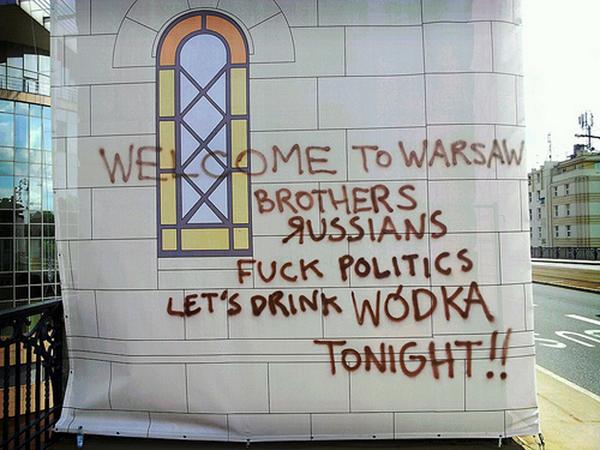 WELCOME TO WARSAW
BROTHERS
ЯUSSIANS
FUCK POLITICS
LET'S DRINK WÓDKA
TONIGHT!!